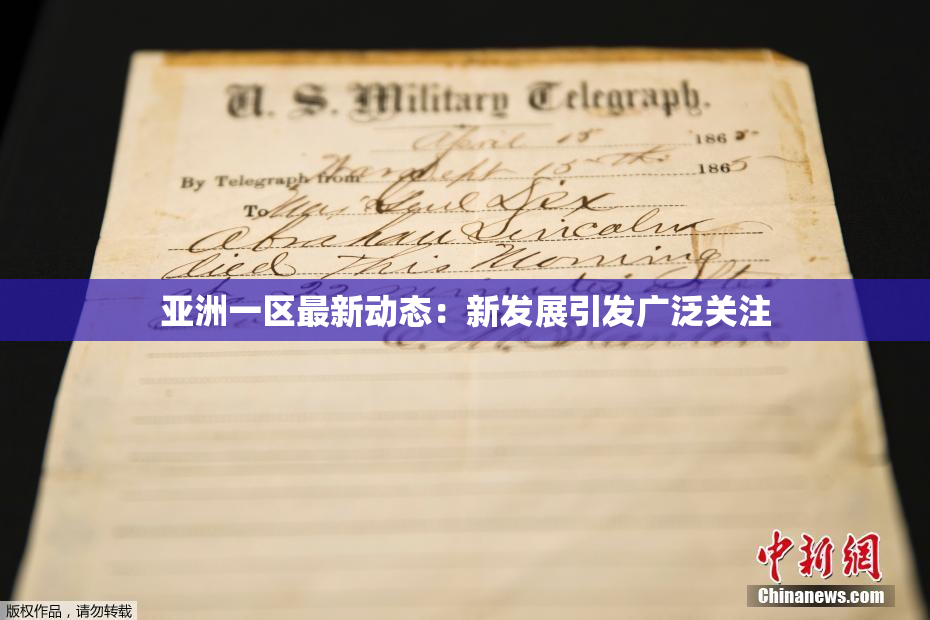 U. S. Military Telegraph.
April 15 1865
By Telegraph from War Dept 15th 1865
To Maj Genl Dix
Abraham Lincoln
died This Morning
22 minutes after
亚洲一区最新动态：新发展引发广泛关注
Stanton
中新網
Chinanews.com
版权作品，请勿转载